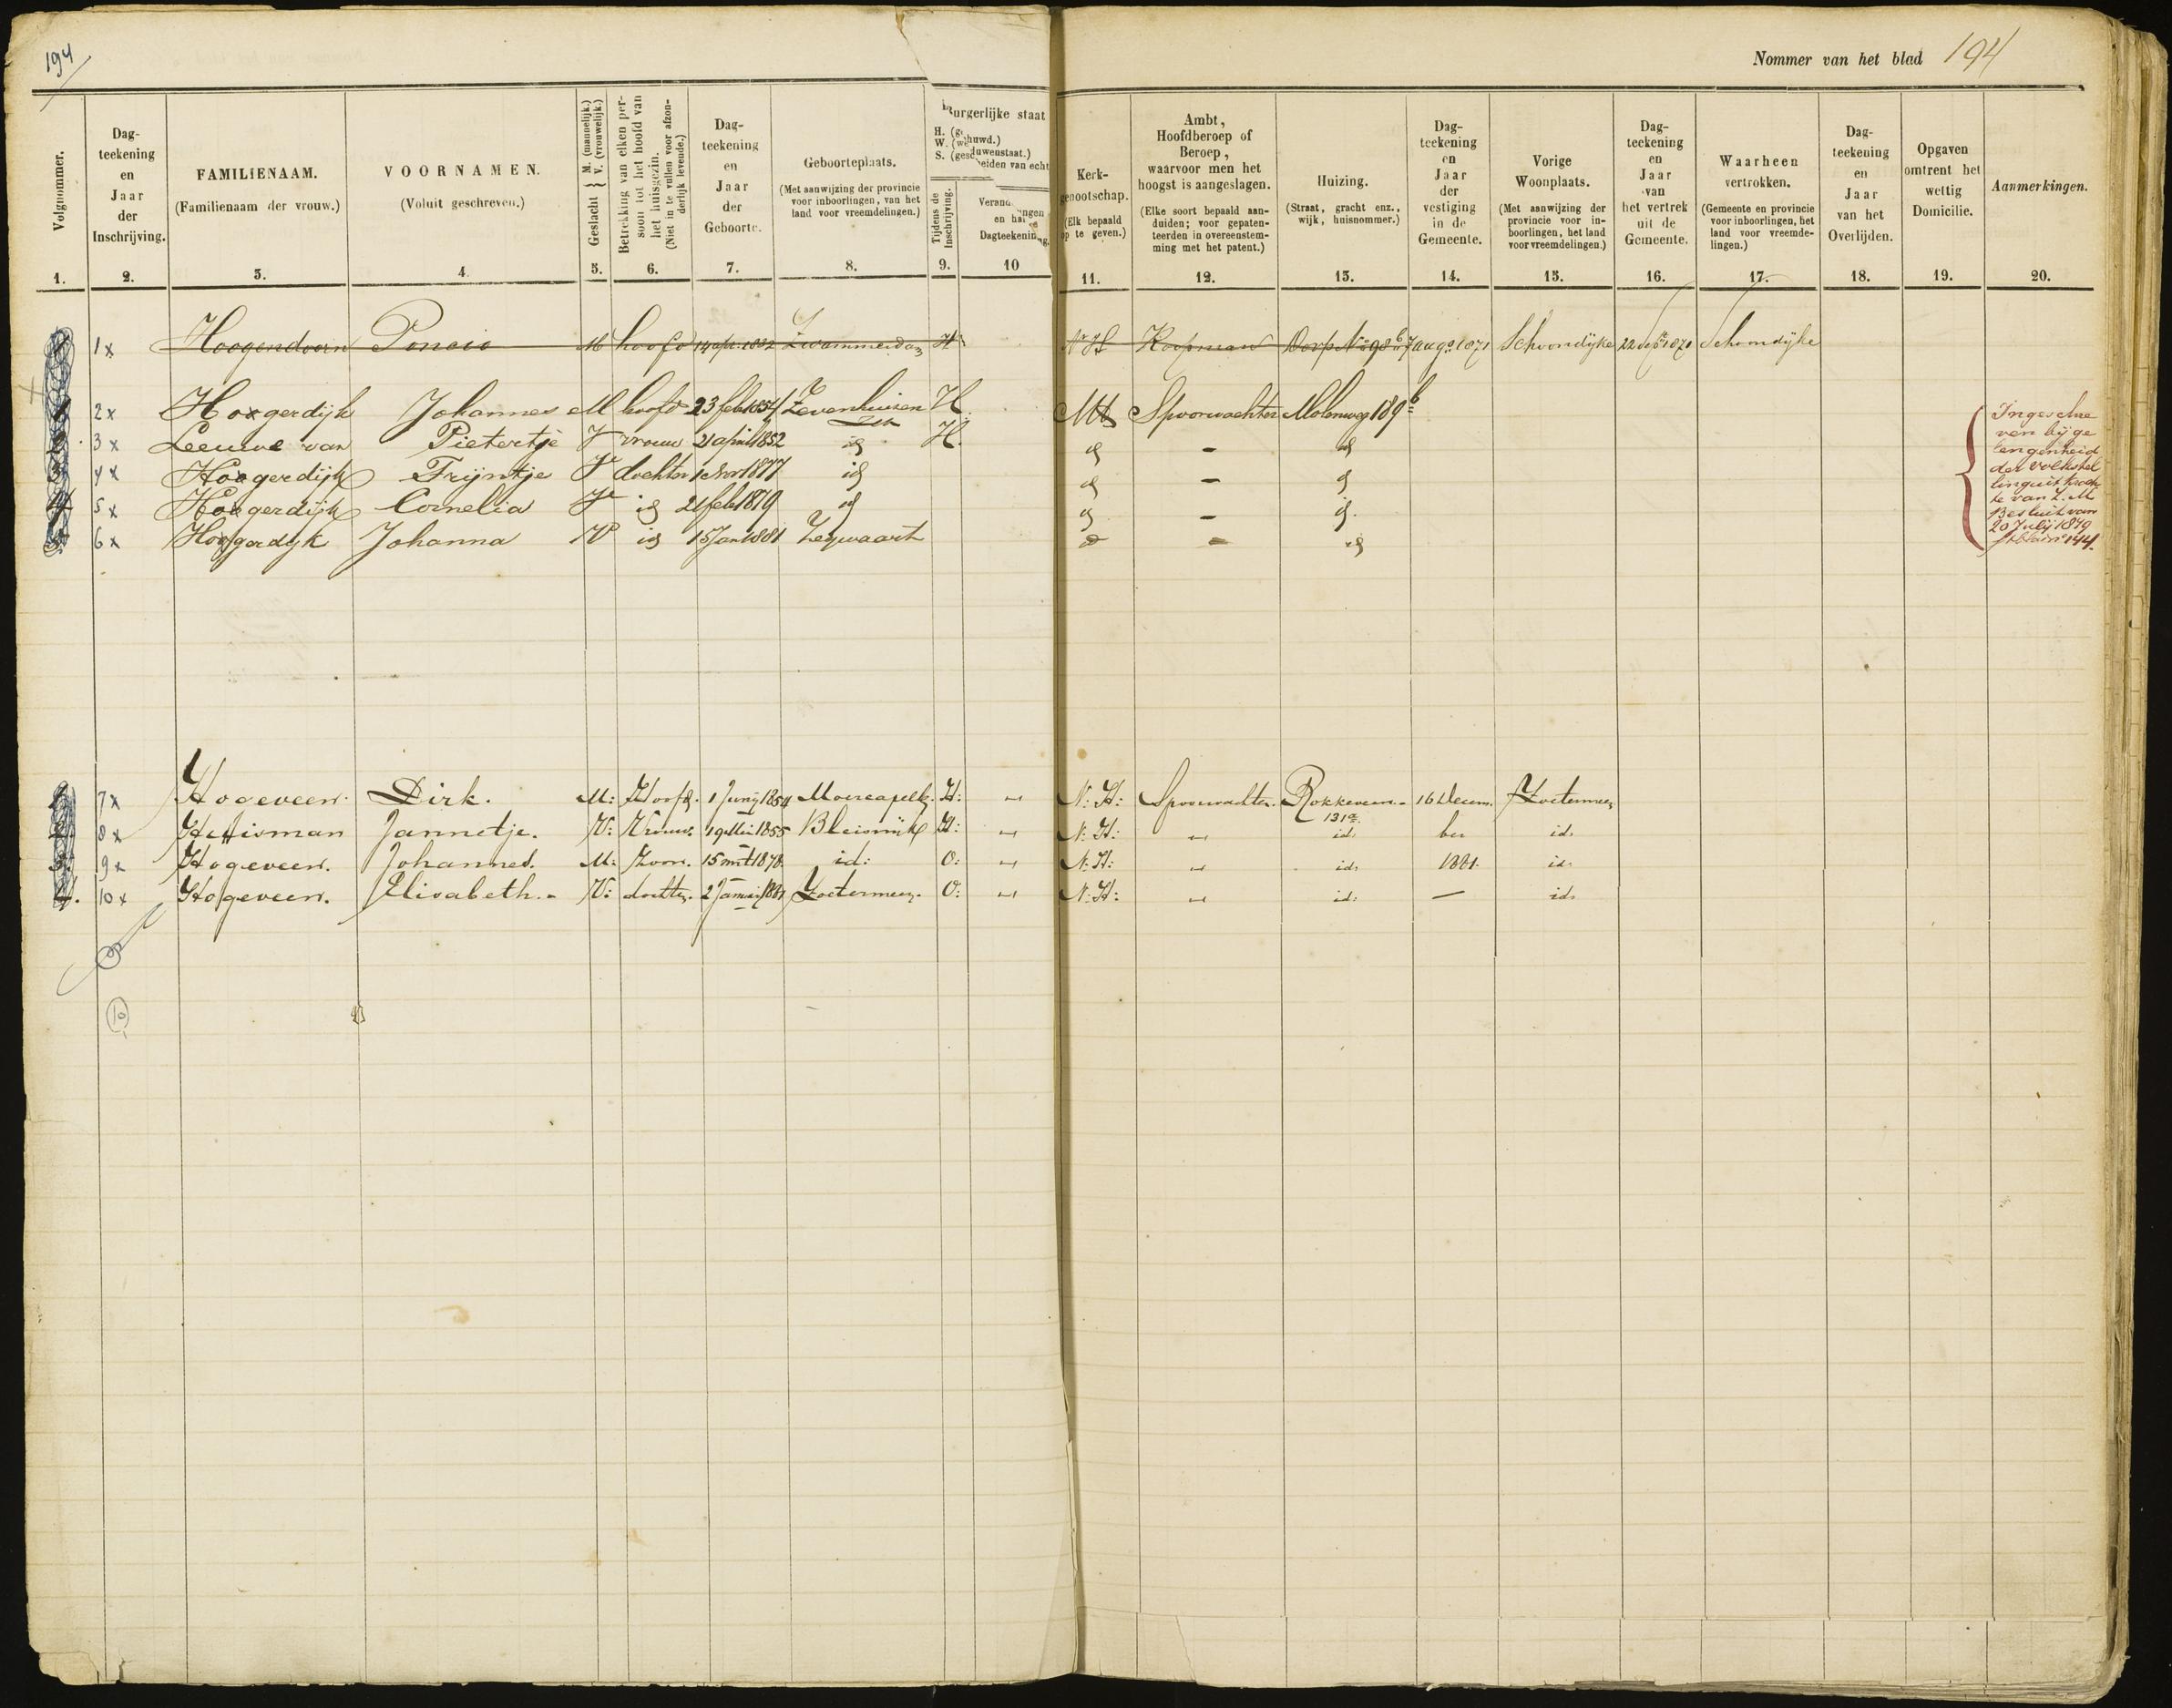 194
Nommer van het blad 194
Volgnommer.
1.
Dag-
teekening
en
Jaar
der
Inschrijving.
2.
FAMILIENAAM.
(Familienaam der vrouw.)
3.
VOORNAMEN.
(Voluit geschreven.)
4.
Geslacht { M. (mannelijk.) V. (vrouwelijk.)
5.
Betrekking van elken per-
soon tot het hoofd van
het huisgezin.
(Niet in te vullen voor afzon-
derlijk levende.)
6.
Dag-
teekening
en
Jaar
der
Geboorte.
7.
Geboorteplaats.
(Met aanwijzing der provincie
voor inboorlingen, van het
land voor vreemdelingen.)
8.
urgerlijke staat
H. (g huwd.)
W. (we duwenstaat.)
S. (gesc heiden van echt
Tijdens de
Inschrijving.
9.
Verand ingen
en ha
Dagteekening.
10
Kerk-
genootschap.
(Elk bepaald
op te geven.)
11.
Ambt,
Hoofdberoep of
Beroep,
waarvoor men het
hoogst is aangeslagen.
(Elke soort bepaald aan-
duiden; voor gepaten-
teerden in overeenstem-
ming met het patent.)
12.
Huizing.
(Straat, gracht enz.,
wijk, huisnommer.)
13.
Dag-
teekening
en
Jaar
der
vestiging
in de
Gemeente.
14.
Vorige
Woonplaats.
(Met aanwijzing der
provincie voor in-
boorlingen, het land
voor vreemdelingen.)
15.
Dag-
teekening
en
Jaar
van
het vertrek
uit de
Gemeente.
16.
Waarheen
vertrokken.
(Gemeente en provincie
voor inboorlingen, het
land voor vreemde-
lingen.)
17.
Dag-
teekening
en
Jaar
van het
Overlijden.
18.
Opgaven
omtrent het
wettig
Domicilie.
19.
Aanmerkingen.
20.
1x Hoogendoorn Poncio M hoofd 14 apr 1832 Zwammerdam H N H Koopman Dorp No 98 b 7 aug 1871 Schoondijke 22 sept 1871 Schoondijke
2x Hoogerdijk Johannes M hoofd 23 feb 1854 Zevenhuisen H. Spoorwachter Molenweg 189 b
ZH
3x Leeuwe van Pietertje V vrouw 21 april 1852 id H. id - id
4x Hoogerdijk Trijntje V dochter 1 Nov 1877 id id - id
5x Hoogerdijk Cornelia V id 21 feb 1879 id id - id
6x Hoogerdijk Johanna V id 15 Jan 1881 Zegwaart - id
Ingeschre
ven bij ge
legenheid
der volkstel
ling uit krach
te van Z.M.
Besluit van
20 Julij 1879
stblad no 144.
7x Hogeveen. Dirk. M: Hoofd. 1 Junij 1854 Moercapelle. H: " N: H: Spoorwachter. Rokkeveen. 16 Decem. Zoetermeer
131a
8x Huisman Jannetje. V: Vrouw. 19 Mei 1855 Bleiswijk H: " N: H: " id: ber id:
9x Hogeveen. Johannes. M: Zoon. 15 mrt 1878 id: O: " N: H: " id: 1881. id:
10x Hogeveen. Elisabeth. V: dochter. 2 Januarij 1881 Zoetermeer. O: " N: H: " id: — id:
10